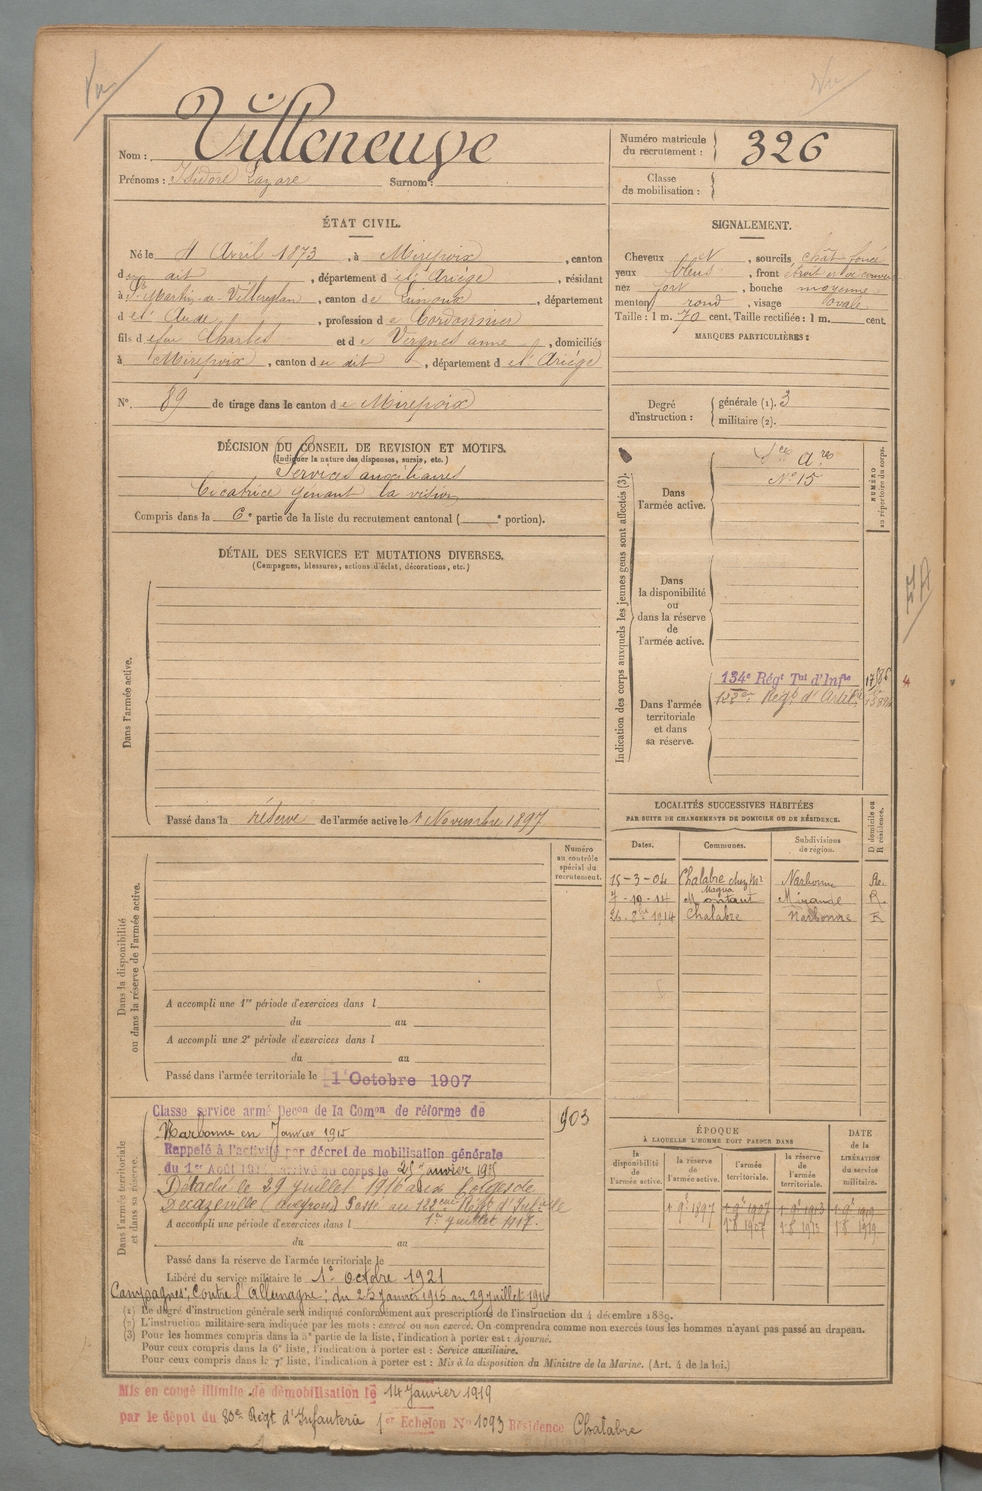 Vu
Vu
Nom : Villeneuve
Prénoms : Isidore Lazare Surnom :
Numéro matricule du recrutement : 326
Classe de mobilisation :
ÉTAT CIVIL.
Né le 4 Avril 1873, à Mirepoix, canton
du dit, département de l'Ariège, résidant
à St Martin-de-Villereglan, canton de Limoux, département
de l'Aude, profession de Cordonnier
fils de feu Charles et de Vergnes anne, domiciliés
à Mirepoix, canton du dit, département de l'Ariège
N° 89 de tirage dans le canton de Mirepoix
SIGNALEMENT.
Cheveux, sourcils chât foncé
yeux bleus, front étroit et découvert
nez fort, bouche moyenne
menton rond, visage ovale
Taille : 1 m. 70 cent. Taille rectifiée : 1 m. cent.
MARQUES PARTICULIÈRES :
Degré d'instruction : générale (1). 3
militaire (2).
DÉCISION DU CONSEIL DE REVISION ET MOTIFS.
(Indiquer la nature des dispenses, sursis, etc.)
Services auxiliaires
Cicatrice gênant la vision
Compris dans la 6e partie de la liste du recrutement cantonal ( e portion).
DÉTAIL DES SERVICES ET MUTATIONS DIVERSES.
(Campagnes, blessures, actions d'éclat, décorations, etc.)
Dans l'armée active.
Passé dans la réserve de l'armée active le 1 Novembre 1897
Indication des corps auxquels les jeunes gens sont affectés (3).
NUMÉRO au répertoire du corps.
Dans l'armée active.
Sces Ares
No 15
Dans la disponibilité ou dans la réserve de l'armée active.
Dans l'armée territoriale et dans sa réserve.
134e Régt Tal d'Infie
LOCALITÉS SUCCESSIVES HABITÉES
PAR SUITE DE CHANGEMENTS DE DOMICILE OU DE RÉSIDENCE.
D domicile ou R résidence.
Dates. Communes. Subdivisions de région.
15-3-04 Chalabre chez Mr Narbonne R.
7-10-14 Montaut Mirande R.
1914 Chalabre Narbonne R
Dans la disponibilité ou dans la réserve de l'armée active.
Numéro au contrôle spécial du recrutement.
A accompli une 1re période d'exercices dans l
du au
A accompli une 2e période d'exercices dans l
du au
Passé dans l'armée territoriale le 1 Octobre 1907
Dans l'armée territoriale et dans sa réserve.
903
Classé service armé Decon de la Comon de réforme de
Narbonne en Janvier 1915
Rappelé à l'activité par décret de mobilisation générale
du 1er Août 191 arrivé au corps le 25 Janvier 1915
Détaché le 29 juillet 1916 aux forges de
Decazeville (Aveyron) Passé au 122eme Régt d'Infrie le
A accompli une période d'exercices dans l 1er juillet 1917.
du au
Passé dans la réserve de l'armée territoriale le
Libéré du service militaire le 1er Octobre 1921
Campagnes : Contre l'Allemagne ; du 25 janvier 1915 au 29 juillet 1916
ÉPOQUE
À LAQUELLE L'HOMME DOIT PASSER DANS
DATE de la LIBÉRATION du service militaire.
la disponibilité de l'armée active.
la réserve de l'armée active.
l'armée territoriale.
la réserve de l'armée territoriale.
1 9e 1897 1 9e 1907 1 9e 1913 1 9e 1919
(1) Le degré d'instruction générale sera indiqué conformément aux prescriptions de l'instruction du 4 décembre 1889.
(2) L'instruction militaire sera indiquée par les mots : exercé ou non exercé. On comprendra comme non exercés tous les hommes n'ayant pas passé au drapeau.
(3) Pour les hommes compris dans la 5e partie de la liste, l'indication à porter est : Ajourné.
Pour ceux compris dans la 6e liste, l'indication à porter est : Service auxiliaire.
Pour ceux compris dans le 7e liste, l'indication à porter est : Mis à la disposition du Ministre de la Marine. (Art. 4 de la loi.)
Mis en congé illimité de démobilisation le 14 Janvier 1919
par le dépot du 80e Régt d'Infanterie 1er Echelon No 1093 Résidence Chalabre